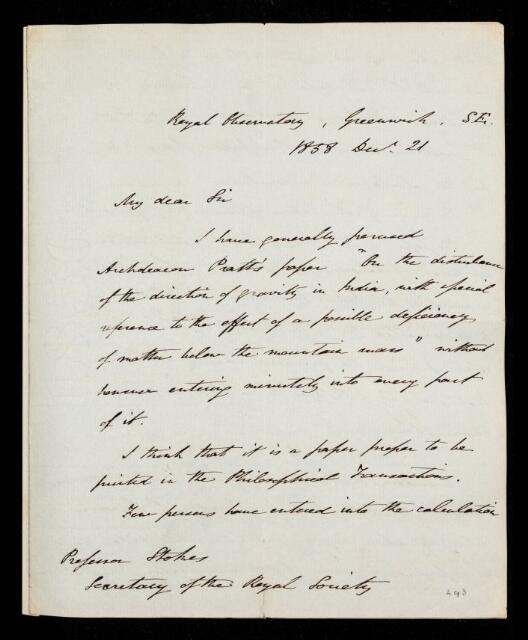 Royal Observatory, Greenwich, S.E.
1858 Dec. 21
My dear Sir
I have generally perused
Archdeacon Pratt's paper "On the disturbance
of the direction of gravity in India, with special
reference to the effect of a possible deficiency
of matter below the mountain mass" without
however entering minutely into every part
of it.
I think that it is a paper proper to be
printed in the Philosophical Transactions.
Few persons have entered into the calculation
Professor Stokes
Secretary of the Royal Society
493